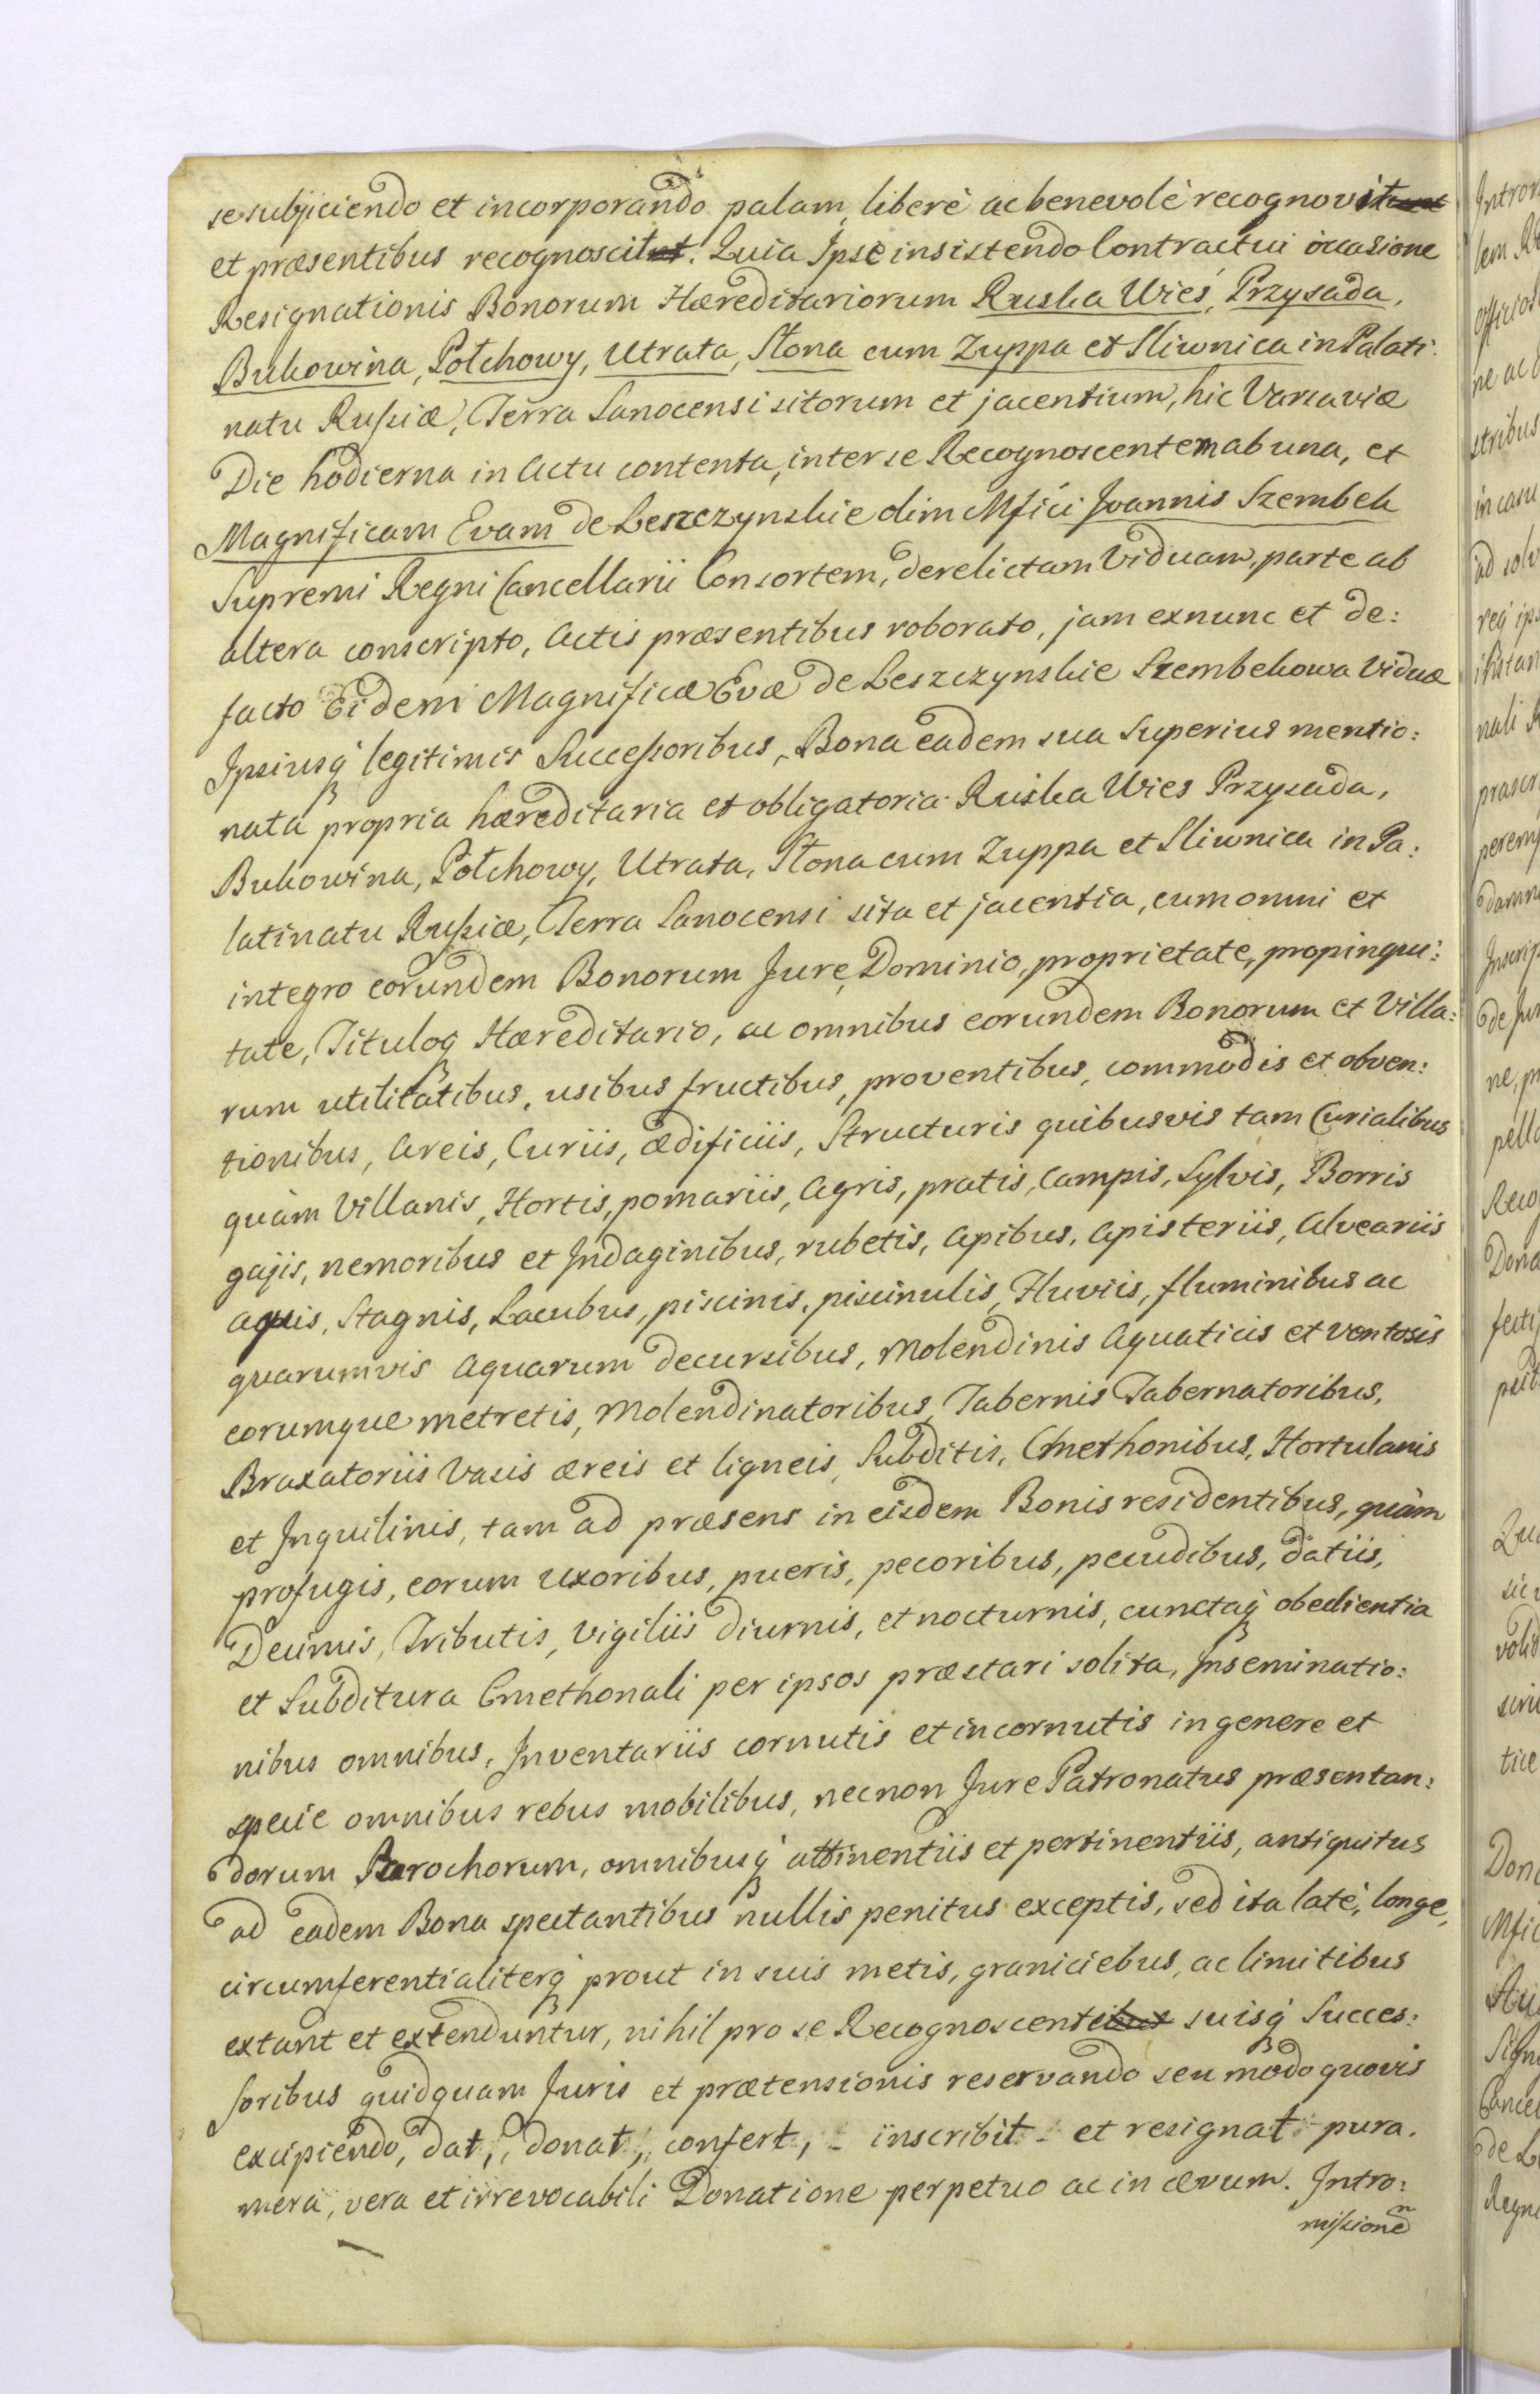 se subjiciendo et incorporando palam, liberè ac benevolè recognovit
et præsentibus recognoscit. Quia Ipse insistendo Contractui occasione
Resignationis Bonorum Hæreditariorum Ruska Wieś, Przysada,
Bukowina, Połchowy, Utrata, Słona cum Zuppa et Sliwnica in Palati:
natu Russiæ, Terra Sanocensi sitorum et jacentium, hic Varsaviæ
Die hodierna in Actu contenta, inter se Recognoscentem ab una, et
Magnificam Evam de Leszczynskie olim Mfici Joannis Szembek
Supremi Regni Cancellarii Consortem, derelictam Viduam, parte ab
altera conscripto, Actis præsentibus roborato, jam exnunc et de:
facto Eidem Magnificæ Evæ de Leszczynskie Szembekowa Viduæ
Ipsiusq̃ legitimis Successoribus, Bona eadem sua Superius mentio:
nata propria hæreditaria et obligatoria Ruska Wies Przysada,
Bukowina, Połchowy, Utrata, Słona cum Zuppa et Sliwnica in Pa:
latinatu Russiæ, Terra Sanocensi sita et jacentia, cum omni et
integro eorundem Bonorum Jure, Dominio, proprietate, propinqui:
tate, Tituloq̃ Hæreditario, ac omnibus eorundem Bonorum et Villa:
rum utilitatibus, usibus fructibus, proventibus, commodis et obven:
tionibus, Areis, Curiis, ædificiis, Structuris quibusvis tam Curialibus
quàm Villanis, Hortis, pomariis, Agris, pratis, Campis, Sylvis, Borris
gajis, nemoribus et Indaginibus, rubetis, Apibus, Apisteriis, Alveariis
aquis, Stagnis, Lacubus, piscinis, piscinulis, Fluviis, fluminibus ac
quarumvis Aquarum decursibus, Molendinis Aquaticis et ventosis
eorumque metretis, Molendinatoribus, Tabernis Tabernatoribus,
Braxatoriis Vasis æreis et ligneis, Subditis, Cmethonibus, Hortulanis
et Inquilinis, tam ad præsens in eisdem Bonis residentibus, quàm
profugis, eorum Uxoribus, pueris, pecoribus, pecudibus, datiis,
Decimis, Tributis, Vigiliis diurnis, et nocturnis, cunctaq̃ obedientia
et Subditura Cmethonali per ipsos præstari solita, Inseminatio:
nibus omnibus, Inventariis cornutis et incornutis in genere et
specie omnibus rebus mobilibus, necnon Jure Patronatus præsentan:
dorum Parochorum, omnibusq̃ attinentiis et pertinentiis, antiquitus
ad eadem Bona spectantibus nullis penitus exceptis, sed ita latè, longe,
circumferentialiterq̃ prout in suis metis, graniciebus, ac limitibus
extant et extenduntur, nihil pro se Recognoscente suisq̃ Succes:
soribus quidquam Juris et prætensionis reservando seu modo quovis
excipiendo, dat, donat, confert, - inscribit - et resignat pura.
mera, vera et irrevocabili Donatione perpetuo ac in ævum. Intro:
missionē